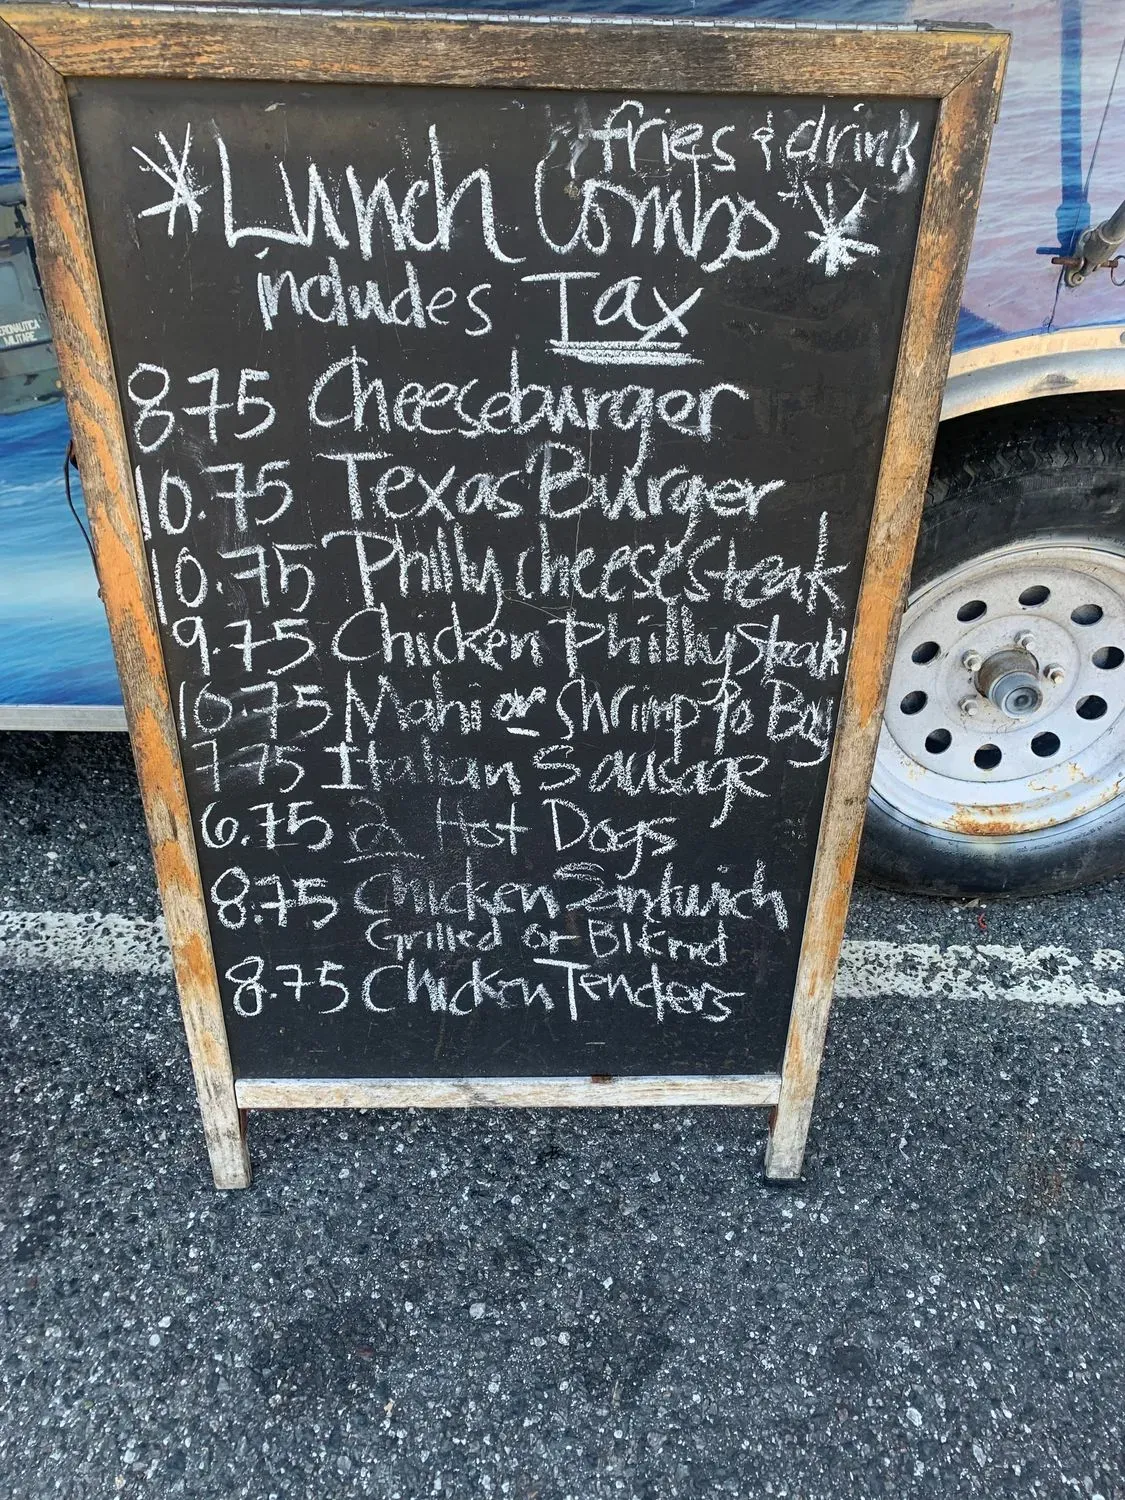 fries & drink
*Lunch Combos*
includes Tax
8.75 Cheeseburger
10.75 Texas Burger
10.75 Philly cheesesteak
9.75 Chicken Philly Steak
10.75 Mahi or Shrimp Po Boy
7.75 Italian Sausage
6.75 2 Hot Dogs
8.75 Chicken Sandwich
Grilled or
8.75 Chicken Tenders
AERONAUTICA
MILITARE